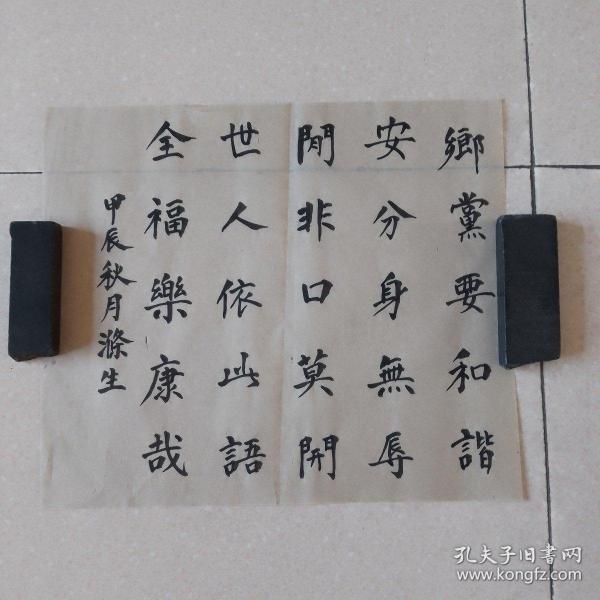 鄉黨要和諧
安分身無辱
閒非口莫開
世人依此語
全福樂康哉
甲辰秋月滌生
孔夫子旧书网
www.kongfz.com